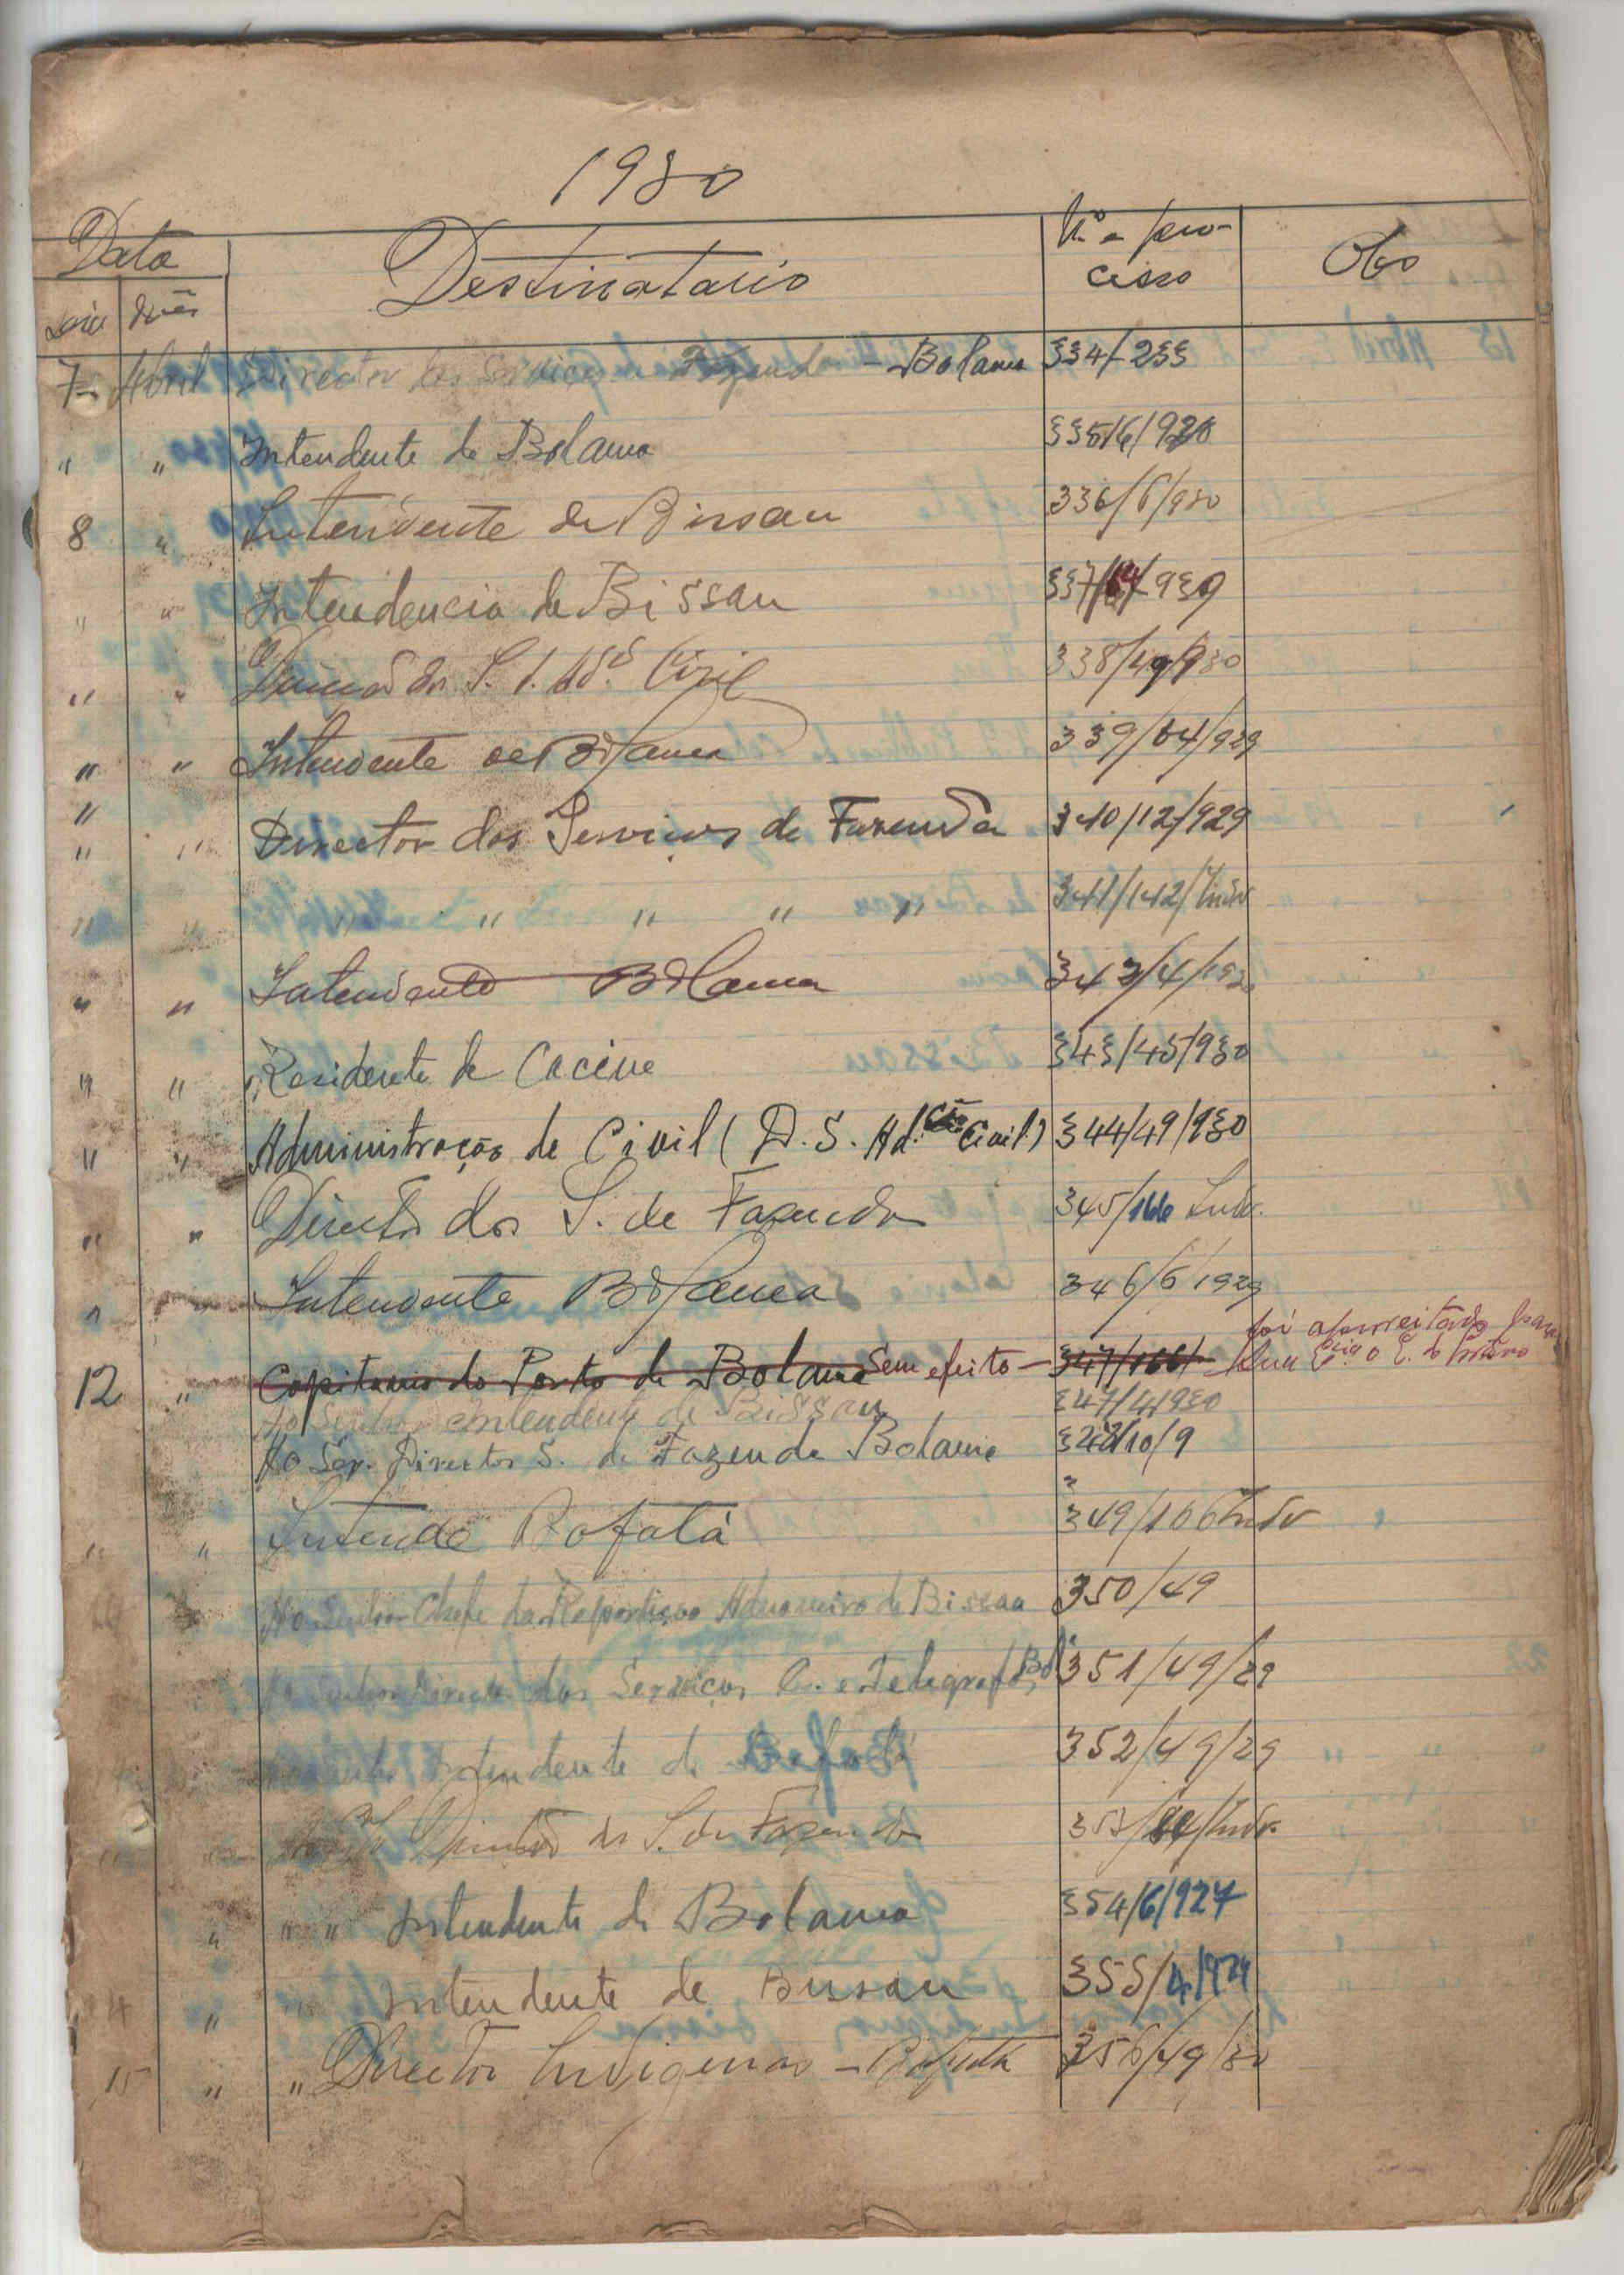 1930
Data Destinatario N.º e pro-
cesso Obs
Dia Mês
7 Abril Director dos Serviços de Fazenda - Bolama 334/233
" " Intendente de Bolama 335/6/920
8 " Intendente de Bissau 336/6/930
" " Intendencia de Bissau 337/64/930
" " 338/49/930
" " Intendente de Bolama 339/64/929
"
" " Director dos Serviços de Fazenda 340/12/929
" " " " " " " 341/142/Indv
" " Intendente Bolama 342/4/
" " Residente de Cacine 343/45/930
" " Administração de Civil (D. S. Ad. Civil) 344/49/930
" " Director dos S. de Fazenda 345/166 Indv.
" " Intendente Bolama 346/6/929
foi aproveitado para
12 " Capitania do Porto de Bolama Sem efeito - 347/166/
Ao Senhor Intendente de Bissau 347/4/930
Ao Snr. Director S. de Fazenda Bolama 348/10/9
" " Intende Bafatá 349/166 Indv
Ao Senhor Chefe da Repartição Aduaneira de Bissau 350/49
Ao Senhor Director dos Serviços C. e Telegraf. Bol 351/49/29
Intendente de Bafatá 352/49/29
" " Director dos S. de Fazenda 353/84/Indv.
" " " Intendente de Bolama 354/6/927
14 " " Intendente de Bissau 355/4/929
15 " " Director Indigenas - Bafatá 356/49/30